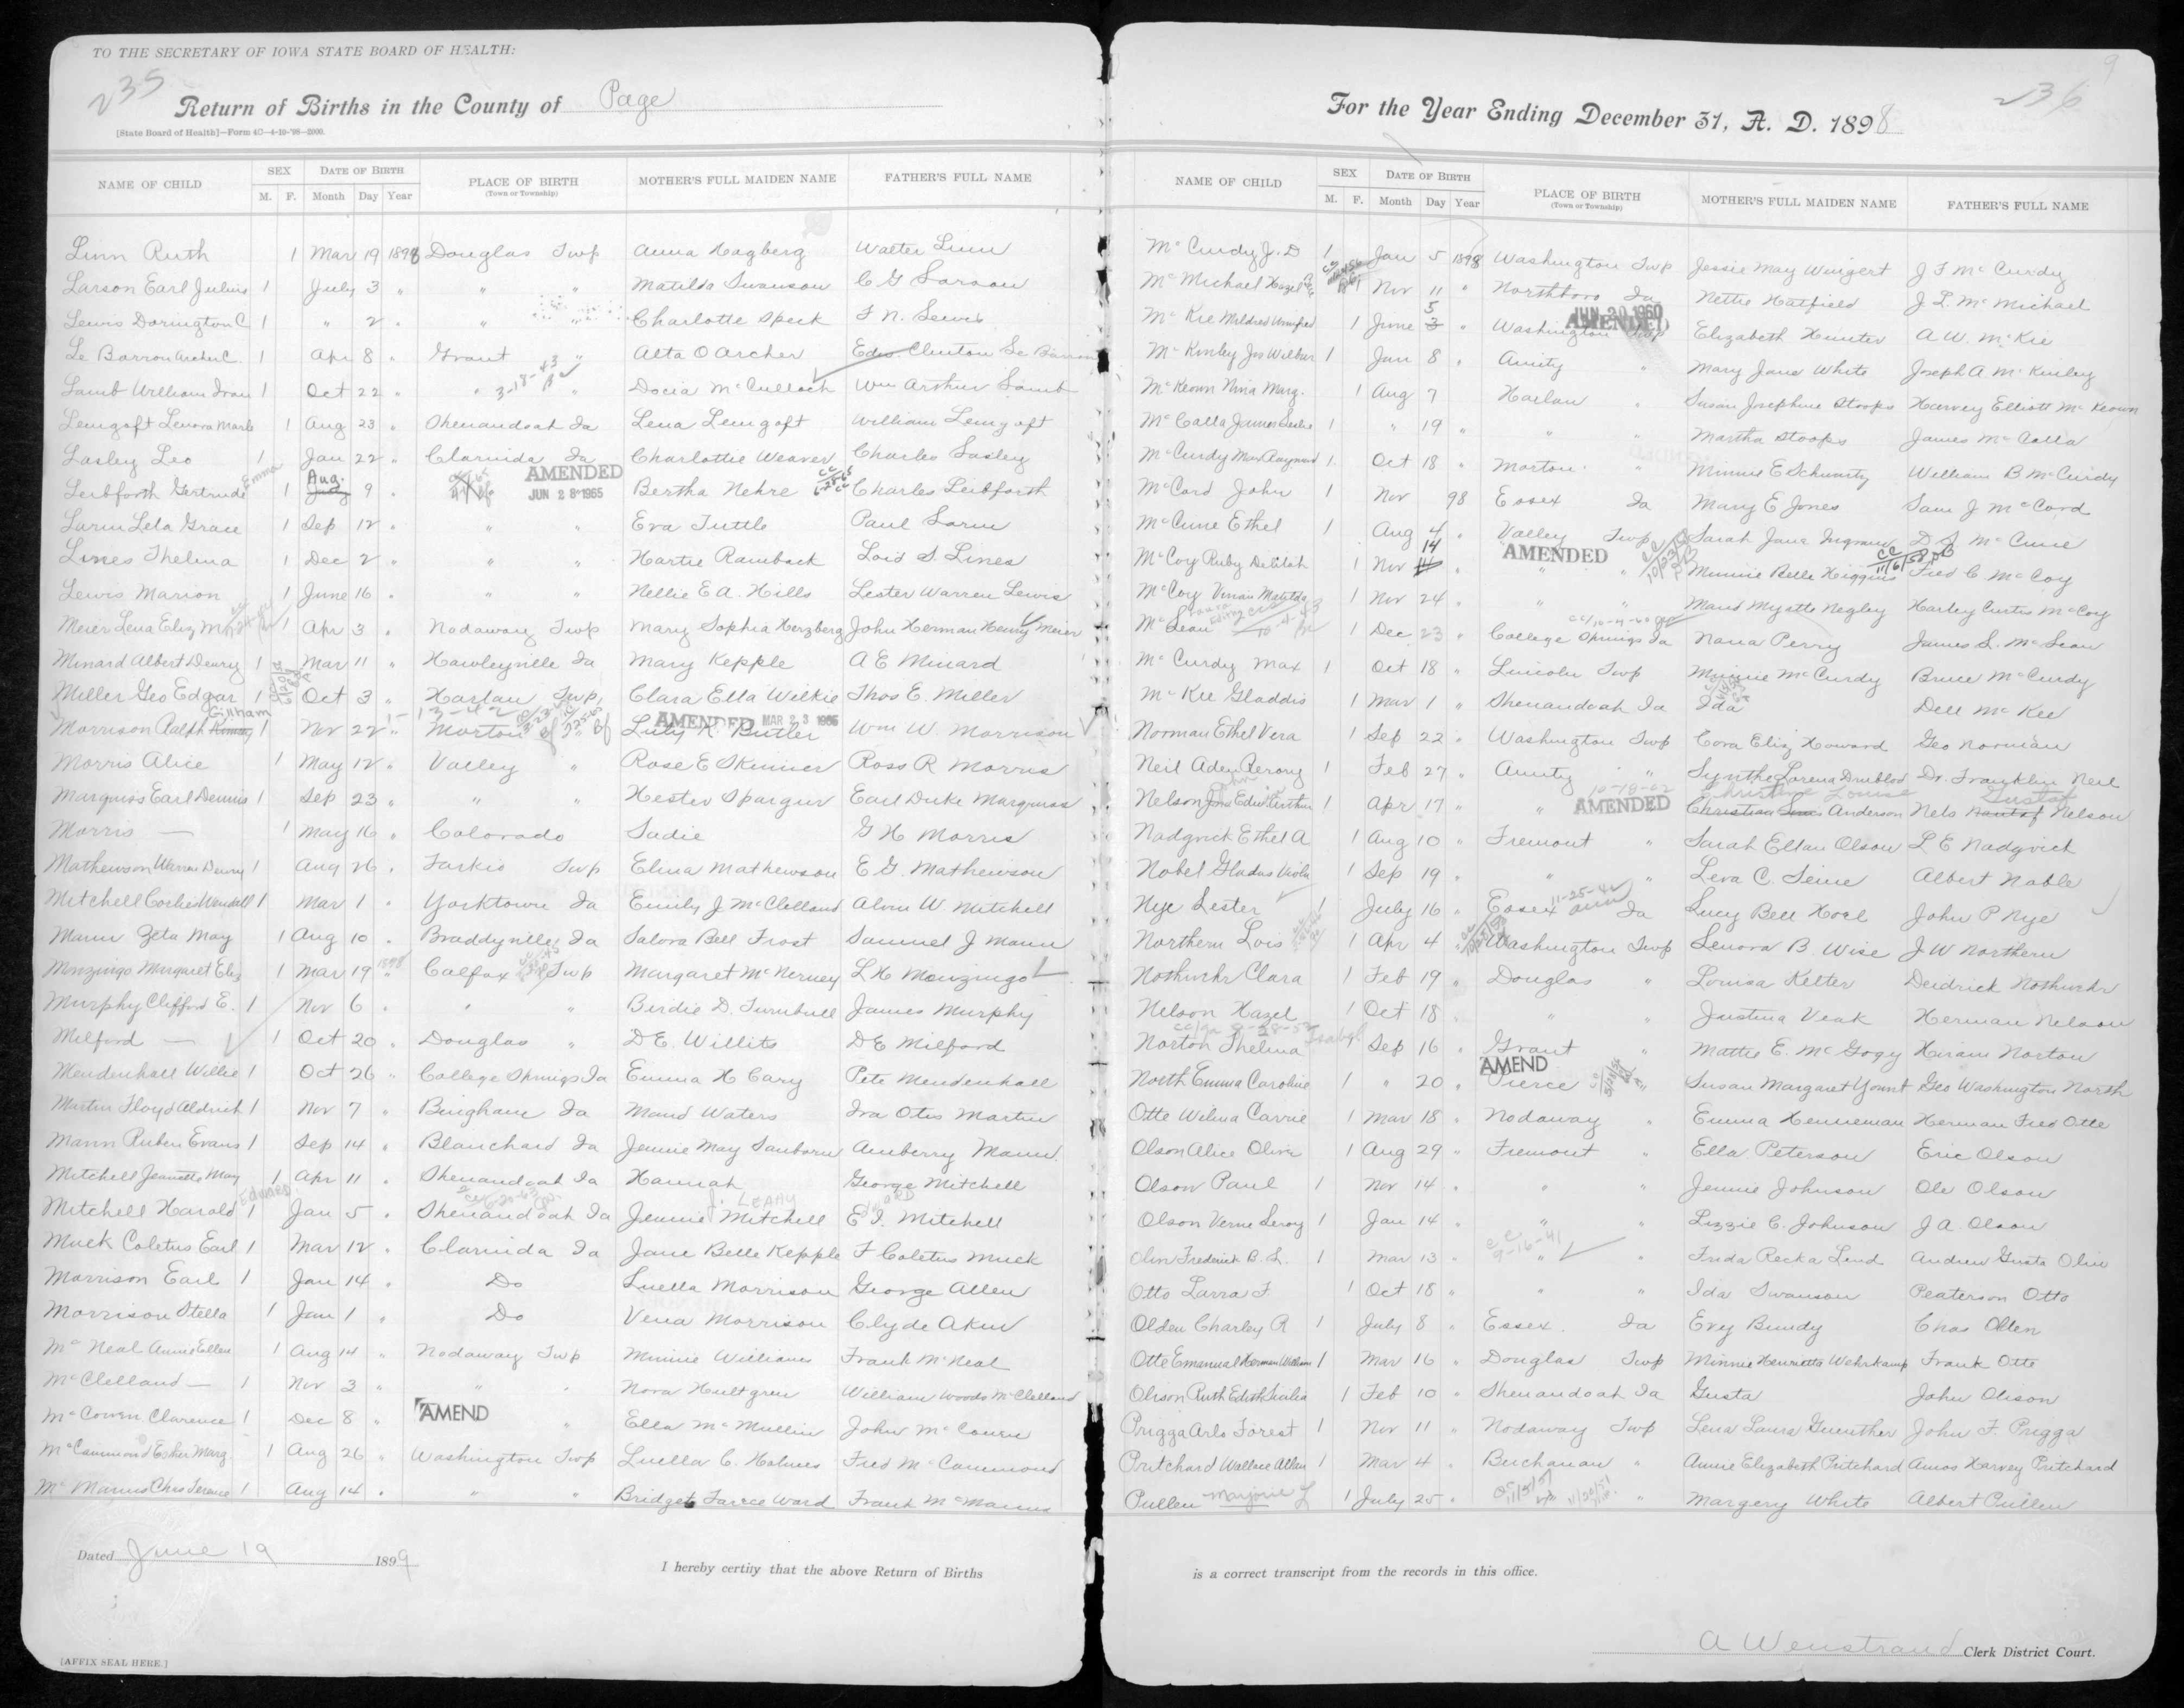 TO THE SECRETARY OF IOWA STATE BOARD OF HEALTH:
235
Return of Births in the County of Page
[State Board of Health]—Form 4C—4-10-'98—2000.
NAME OF CHILD SEX M. F. DATE OF BIRTH Month Day Year PLACE OF BIRTH (Town or Township) MOTHER'S FULL MAIDEN NAME FATHER'S FULL NAME
Linn Ruth 1 Mar 19 1898 Douglas Twp Anna Hagberg Walter Linn
Larson Earl Julius 1 July 3 " " " Matilda Swanson C G Larson
Lewis Dorington C 1 " 2 " " " Charlotte Speck F N. Lewis
Le Barron Archer C. 1 Apr 8 " Grant " Alta O Archer Edw. Clinton Le Barron
Lamb William Ivan 1 Oct 22 " " 3-18-43 " Docia McCulloch Wm Arthur Lamb
Lengoft Lenora Marb 1 Aug 23 " Shenandoah Ia Lena Lengoft William Lengoft
Lasley Leo 1 Jan 22 " Clarinda Ia Charlottie Weaver Charles Lasley
Leibforth Gertrude Emma 1 Aug. 9 " AMENDED JUN 28 1965 Bertha Nehre Charles Leibforth
Larm Lela Grace 1 Sep 12 " " " Eva Tuttle Paul Larm
Lines Thelma 1 Dec 2 " " " Hattie Ramback Loid S. Lines
Lewis Marion 1 June 16 " " " Nellie E A. Hills Lester Warren Lewis
Meier Lena Eliz M 1 Apr 3 " Nodaway Twp Mary Sophia Herzberg John Herman Henry Meier
Minard Albert Dewry 1 Mar 11 " Hawleyville Ia Mary Kepple A E Minard
Miller Geo Edgar 1 Oct 3 " Harlan Twp Clara Ella Wilkie Thos E. Miller
Morrison Ralph Gillham 1 Nov 22 " Morton " AMENDED MAR 23 1965 Lucy K Butler Wm W. Morrison
Morris Alice 1 May 12 " Valley " Rose E Skinner Ross R Morris
Marquiss Earl Dennis 1 Sep 23 " " " Hester Spargur Earl Duke Marquiss
Morris — 1 May 16 " Colorado Sadie G H Morris
Mathewson Warren Dewey 1 Aug 26 " Tarkio Twp Elma Mathewson E G. Mathewson
Mitchell Corliss Wendall 1 Mar 1 " Yorktown Ia Emily J McClelland Alvin W. Mitchell
Mann Zeta May 1 Aug 10 " Braddyville Ia Salora Bell Frost Samuel J Mann
Mozingo Margaret Eliz 1 Mar 19 1898 Colfax Twp Margaret McNerney L H Mozingo
Murphy Clifford E. 1 Nov 6 " " " Birdie D. Turnbull James Murphy
Milford — 1 Oct 20 " Douglas " D E. Willits D E Milford
Mendenhall Willie 1 Oct 26 " College Springs Ia Emma H Cary Pete Mendenhall
Martin Floyd Aldrich 1 Nov 7 " Bingham Ia Maud Waters Ira Otis Martin
Mann Ruben Evans 1 Sep 14 " Blanchard Ia Jennie May Sanborn Amberry Mann
Mitchell Jeanette May 1 Apr 11 " Shenandoah Ia Hannah George Mitchell
Mitchell Harold Edward 1 Jan 5 " Shenandoah Ia Jennie J. LEARY Mitchell E I. Mitchell
Muck Coletus Earl 1 Mar 12 " Clarinda Ia Jane Belle Kepple F Coletus Muck
Morrison Earl 1 Jan 14 " Do Luella Morrison George Allen
Morrison Stella 1 Jan 1 " Do Vena Morrison Clyde Akin
McNeal Annie Ellen 1 Aug 14 " Nodaway Twp Minnie Williams Frank McNeal
McClelland — 1 Nov 3 " " " Nora Hultgren William Woods McClelland
McCowen Clarence 1 Dec 8 " AMEND " Ella McMullin John McCowen
McCammond Esther Marg. 1 Aug 26 " Washington Twp Luella C. Holmes Fred McCammond
McManus Chas Terence 1 Aug 14 " " " Bridget Ward Frank McManus
Dated June 19 1899
I hereby certify that the above Return of Births
[AFFIX SEAL HERE.]
9
236
For the Year Ending December 31, A. D. 1898
NAME OF CHILD SEX M. F. DATE OF BIRTH Month Day Year PLACE OF BIRTH (Town or Township) MOTHER'S FULL MAIDEN NAME FATHER'S FULL NAME
McCurdy J. D 1 Jan 5 1898 Washington Twp Jessie May Wingert J F McCurdy
McMichael Hazel 1 Nov 11 " Northboro Ia Nettie Hatfield J L. McMichael
McKie Mildred Winifred 1 June 5 " Washington Twp JUN 20 1960 AMENDED Elizabeth Hunter A W. McKie
McKinley Jos Wilbur 1 Jan 8 " Amity " Mary Jane White Joseph A McKinley
McKeown Nina Marg. 1 Aug 7 Harlan " Susan Josephine Stoops Harvey Elliott McKeown
McCalla James Leslie 1 " 19 " " " Martha Stoops James McCalla
McCurdy Max Raymond 1 Oct 18 " Morton " Minnie E Schwarty William B McCurdy
McCord John 1 Nov 98 Essex Ia Mary E Jones Sam J McCord
McCune Ethel 1 Aug 4 " Valley Twp Sarah Jane Ingram D S McCune
McCoy Ruby Delilah 1 Nov 14 " AMENDED " Minnie Belle Higgins Fred C McCoy
McCoy Vivian Matilda 1 Nov 24 " " " Maud Myrtle Negley Harley Curtis McCoy
McLean 1 Dec 23 " College Springs Ia Nana Perry James S. McLean
McCurdy Max 1 Oct 18 " Lincoln Twp Minnie McCurdy Bruce McCurdy
McKee Gladdis 1 Mar 1 " Shenandoah Ia Ida Dell McKee
Norman Ethel Vera 1 Sep 22 " Washington Twp Cora Eliz Howard Geo Norman
Neil Aden Perony 1 Feb 27 " Amity " Synthe Lorena Dr. Franklin Neil
Nelson John Edw Arthur 1 Apr 17 " " 10-18-62 AMENDED Christine Louise Anderson Nels Gustaf Nelson
Nadgvick Ethel A 1 Aug 10 " Fremont " Sarah Ellan Olson L E Nadgvick
Nobel Gladus Viola 1 Sep 19 " " " Leva C. Seine Albert Noble
Nye Lester 1 July 16 " Essex 11-25-42 Ia Lucy Bell Hoel John P Nye
Northern Lois 1 Apr 4 " Washington Twp Lenora B. Wise J W Northern
Nothwehr Clara 1 Feb 19 " Douglas " Louisa Kelter Deidrick Nothwehr
Nelson Hazel 1 Oct 18 " " " Justina Veak Herman Nelson
Norton Thelma Isabel 1 Sep 16 " Grant " Mattie E. McGogy Hiram Norton
North Emma Caroline 1 " 20 " AMEND Pierce " Susan Margaret Yount Geo Washington North
Otte Wilma Carrie 1 Mar 18 " Nodaway " Emma Henneman Herman Fred Otte
Olson Alice Olive 1 Aug 29 " Fremont " Ella Peterson Eric Olson
Olson Paul 1 Nov 14 " " " Jennie Johnson Ole Olson
Olson Verne Leroy 1 Jan 14 " " " Lizzie C. Johnson J A. Olson
Olin Frederick B. L. 1 Mar 13 " cc 9-16-41 " Frida Recka Lind Andrew Gusta Olin
Otto Larra F 1 Oct 18 " " " Ida Swanson Peaterson Otto
Olden Charley R 1 July 8 " Essex Ia Evy Bundy Chas Olden
Otte Emanual Herman William 1 Mar 16 " Douglas Twp Minnie Henrietta Wehrkamp Frank Otte
Olison Ruth Edith 1 Feb 10 " Shenandoah Ia Gusta John Olison
Prigga Arlo Forest 1 Nov 11 " Nodaway Twp Lena Laura Guenther John F. Prigga
Pritchard Wallace Allan 1 Mar 4 " Buchanan " Annie Elizabeth Pritchard Amos Harvey Pritchard
Pullen Marjorie L 1 July 25 " " Margery White Albert Pullen
is a correct transcript from the records in this office.
A Wenstrand Clerk District Court.